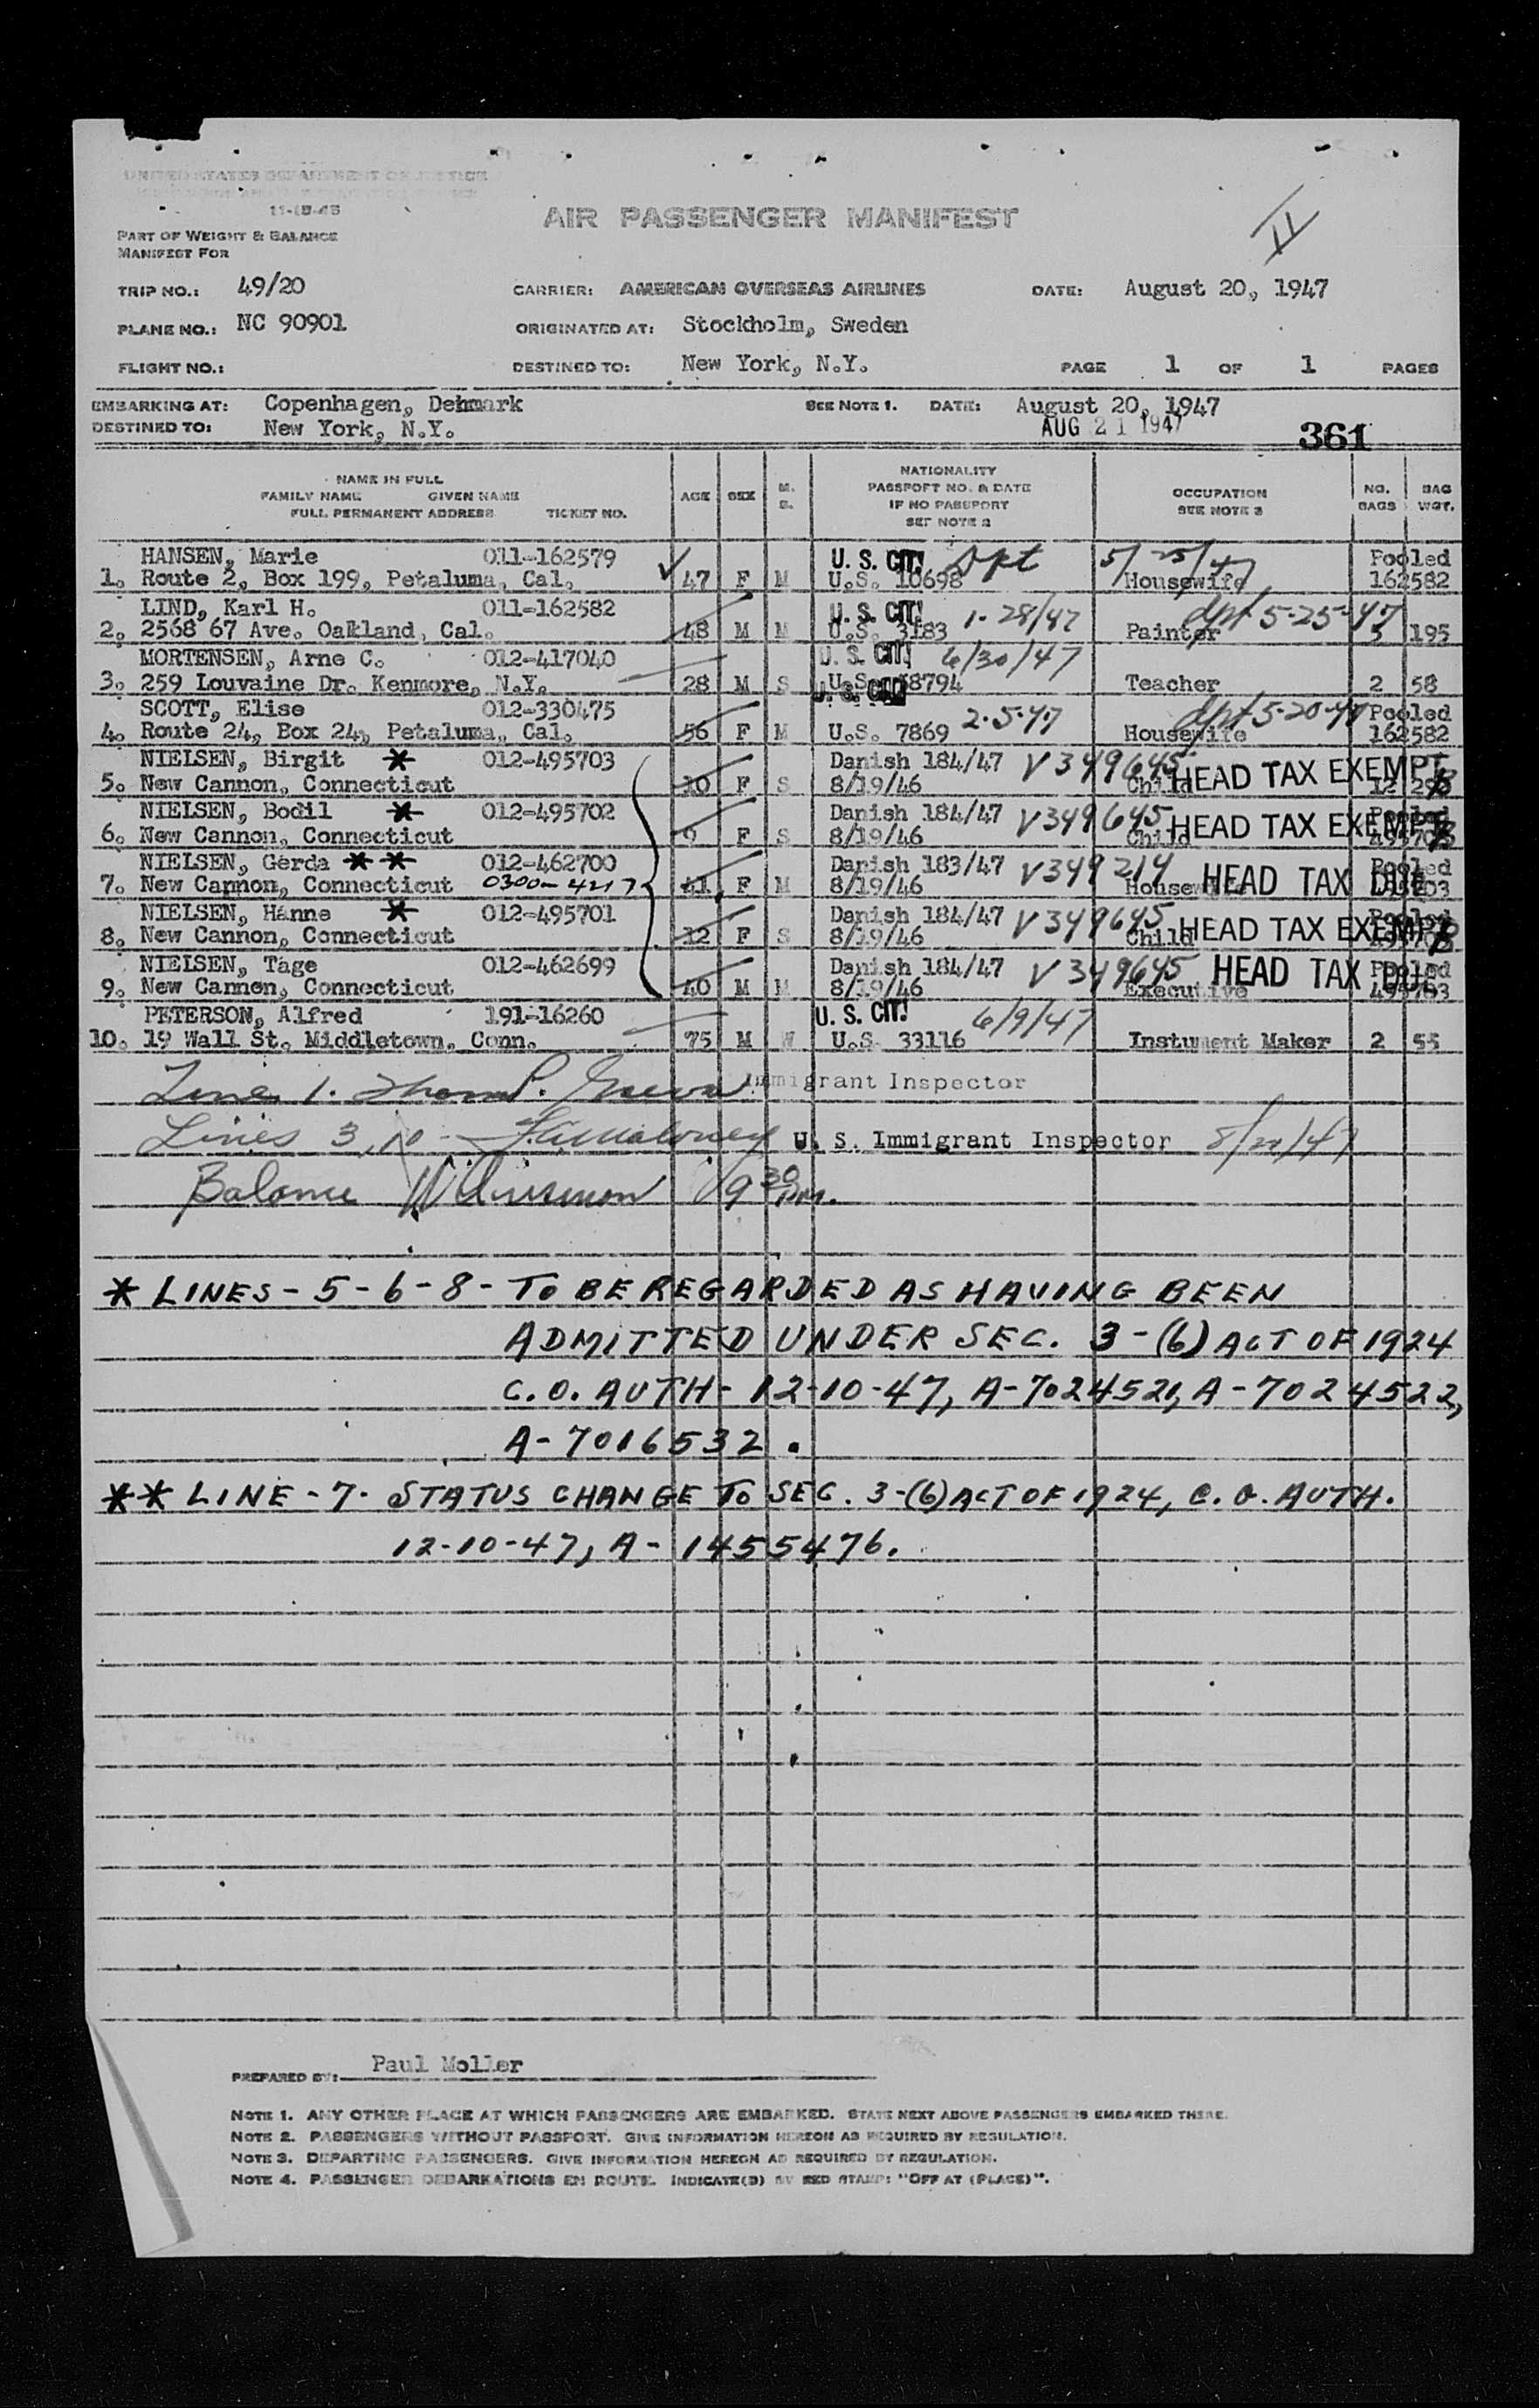 UNITED STATES DEPARTMENT OF JUSTICE
11-15-45
AIR PASSENGER MANIFEST
II
PART OF WEIGHT & BALANCE
MANIFEST FOR
TRIP NO.: 49/20 CARRIER: AMERICAN OVERSEAS AIRLINES DATE: August 20, 1947
PLANE NO.: NC 90901 ORIGINATED AT: Stockholm, Sweden
FLIGHT NO.: DESTINED TO: New York, N.Y. PAGE 1 OF 1 PAGES
EMBARKING AT: Copenhagen, Dehmark SEE NOTE 1. DATE: August 20, 1947
DESTINED TO: New York, N.Y. AUG 21 1947 361
NAME IN FULL
FAMILY NAME GIVEN NAME
FULL PERMANENT ADDRESS TICKET NO. AGE SEX M. S. NATIONALITY PASSPORT NO. & DATE IF NO PASSPORT SEE NOTE 2 OCCUPATION SEE NOTE 3 NO. BAGS BAG WGT.
HANSEN, Marie 011-162579 U. S. CIT. Dpt 5/25/47 Pooled
1. Route 2, Box 199, Petaluma, Cal. 47 F M U.S. 10698 Housewife 162582
LIND, Karl H. 011-162582 U. S. CIT. 1-28/47 dpt 5-25-47
2. 2568 67 Ave. Oakland, Cal. 48 M M U.S. 3183 Painter 3 195
MORTENSEN, Arne C. 012-417040 U. S. CIT. 6/30/47
3. 259 Louvaine Dr. Kenmore, N.Y. 28 M S U.S. 8794 Teacher 2 58
SCOTT, Elise 012-330475 U. S. CIT. 2-5-47 dpt 5-20-47 Pooled
4. Route 24, Box 24, Petaluma, Cal. 56 F M U.S. 7869 Housewife 162582
NIELSEN, Birgit * 012-495703 Danish 184/47 V349645 HEAD TAX EXEMPT
5. New Cannon, Connecticut 10 F S 8/19/46 Child 12
NIELSEN, Bodil * 012-495702 Danish 184/47 V349645 HEAD TAX EXEMPT Pooled
6. New Cannon, Connecticut 9 F S 8/19/46 Child 495703
NIELSEN, Gerda ** 012-462700 Danish 183/47 V349214 HEAD TAX DUE Pooled
7. New Cannon, Connecticut 0300-4217 41 F M 8/19/46
NIELSEN, Hanne * 012-495701 Danish 184/47 V349645 HEAD TAX EXEMPT Pooled
8. New Cannon, Connecticut 12 F S 8/19/46 Child 495703
NIELSEN, Tage 012-462699 Danish 184/47 V349645 HEAD TAX DUE Pooled
9. New Cannon, Connecticut 40 M M 8/19/46 Executive 495703
PETERSON, Alfred 191-16260 U. S. CIT. 6/9/47
10. 19 Wall St. Middletown, Conn. 75 M W U.S. 33116 Instument Maker 2 55
Line 1. Immigrant Inspector
Lines 3, 10 - U. S. Immigrant Inspector 8/20/47
Balance 9 30 P.M.
* LINES - 5 - 6 - 8 - TO BE REGARDED AS HAVING BEEN
ADMITTED UNDER SEC. 3-(6) ACT OF 1924
C.O. AUTH - 12-10-47, A-7024521, A-7024522,
A-7016532.
** LINE - 7. STATUS CHANGE TO SEC. 3-(6) ACT OF 1924, C.O. AUTH.
12-10-47, A-1455476.
PREPARED BY: Paul Moller
NOTE 1. ANY OTHER PLACE AT WHICH PASSENGERS ARE EMBARKED. STATE NEXT ABOVE PASSENGERS EMBARKED THERE.
NOTE 2. PASSENGERS WITHOUT PASSPORT. GIVE INFORMATION HEREON AS REQUIRED BY REGULATION.
NOTE 3. DEPARTING PASSENGERS. GIVE INFORMATION HEREON AS REQUIRED BY REGULATION.
NOTE 4. PASSENGER DEBARKATIONS EN ROUTE. INDICATE(D) BY RED STAMP: "OFF AT (PLACE)".